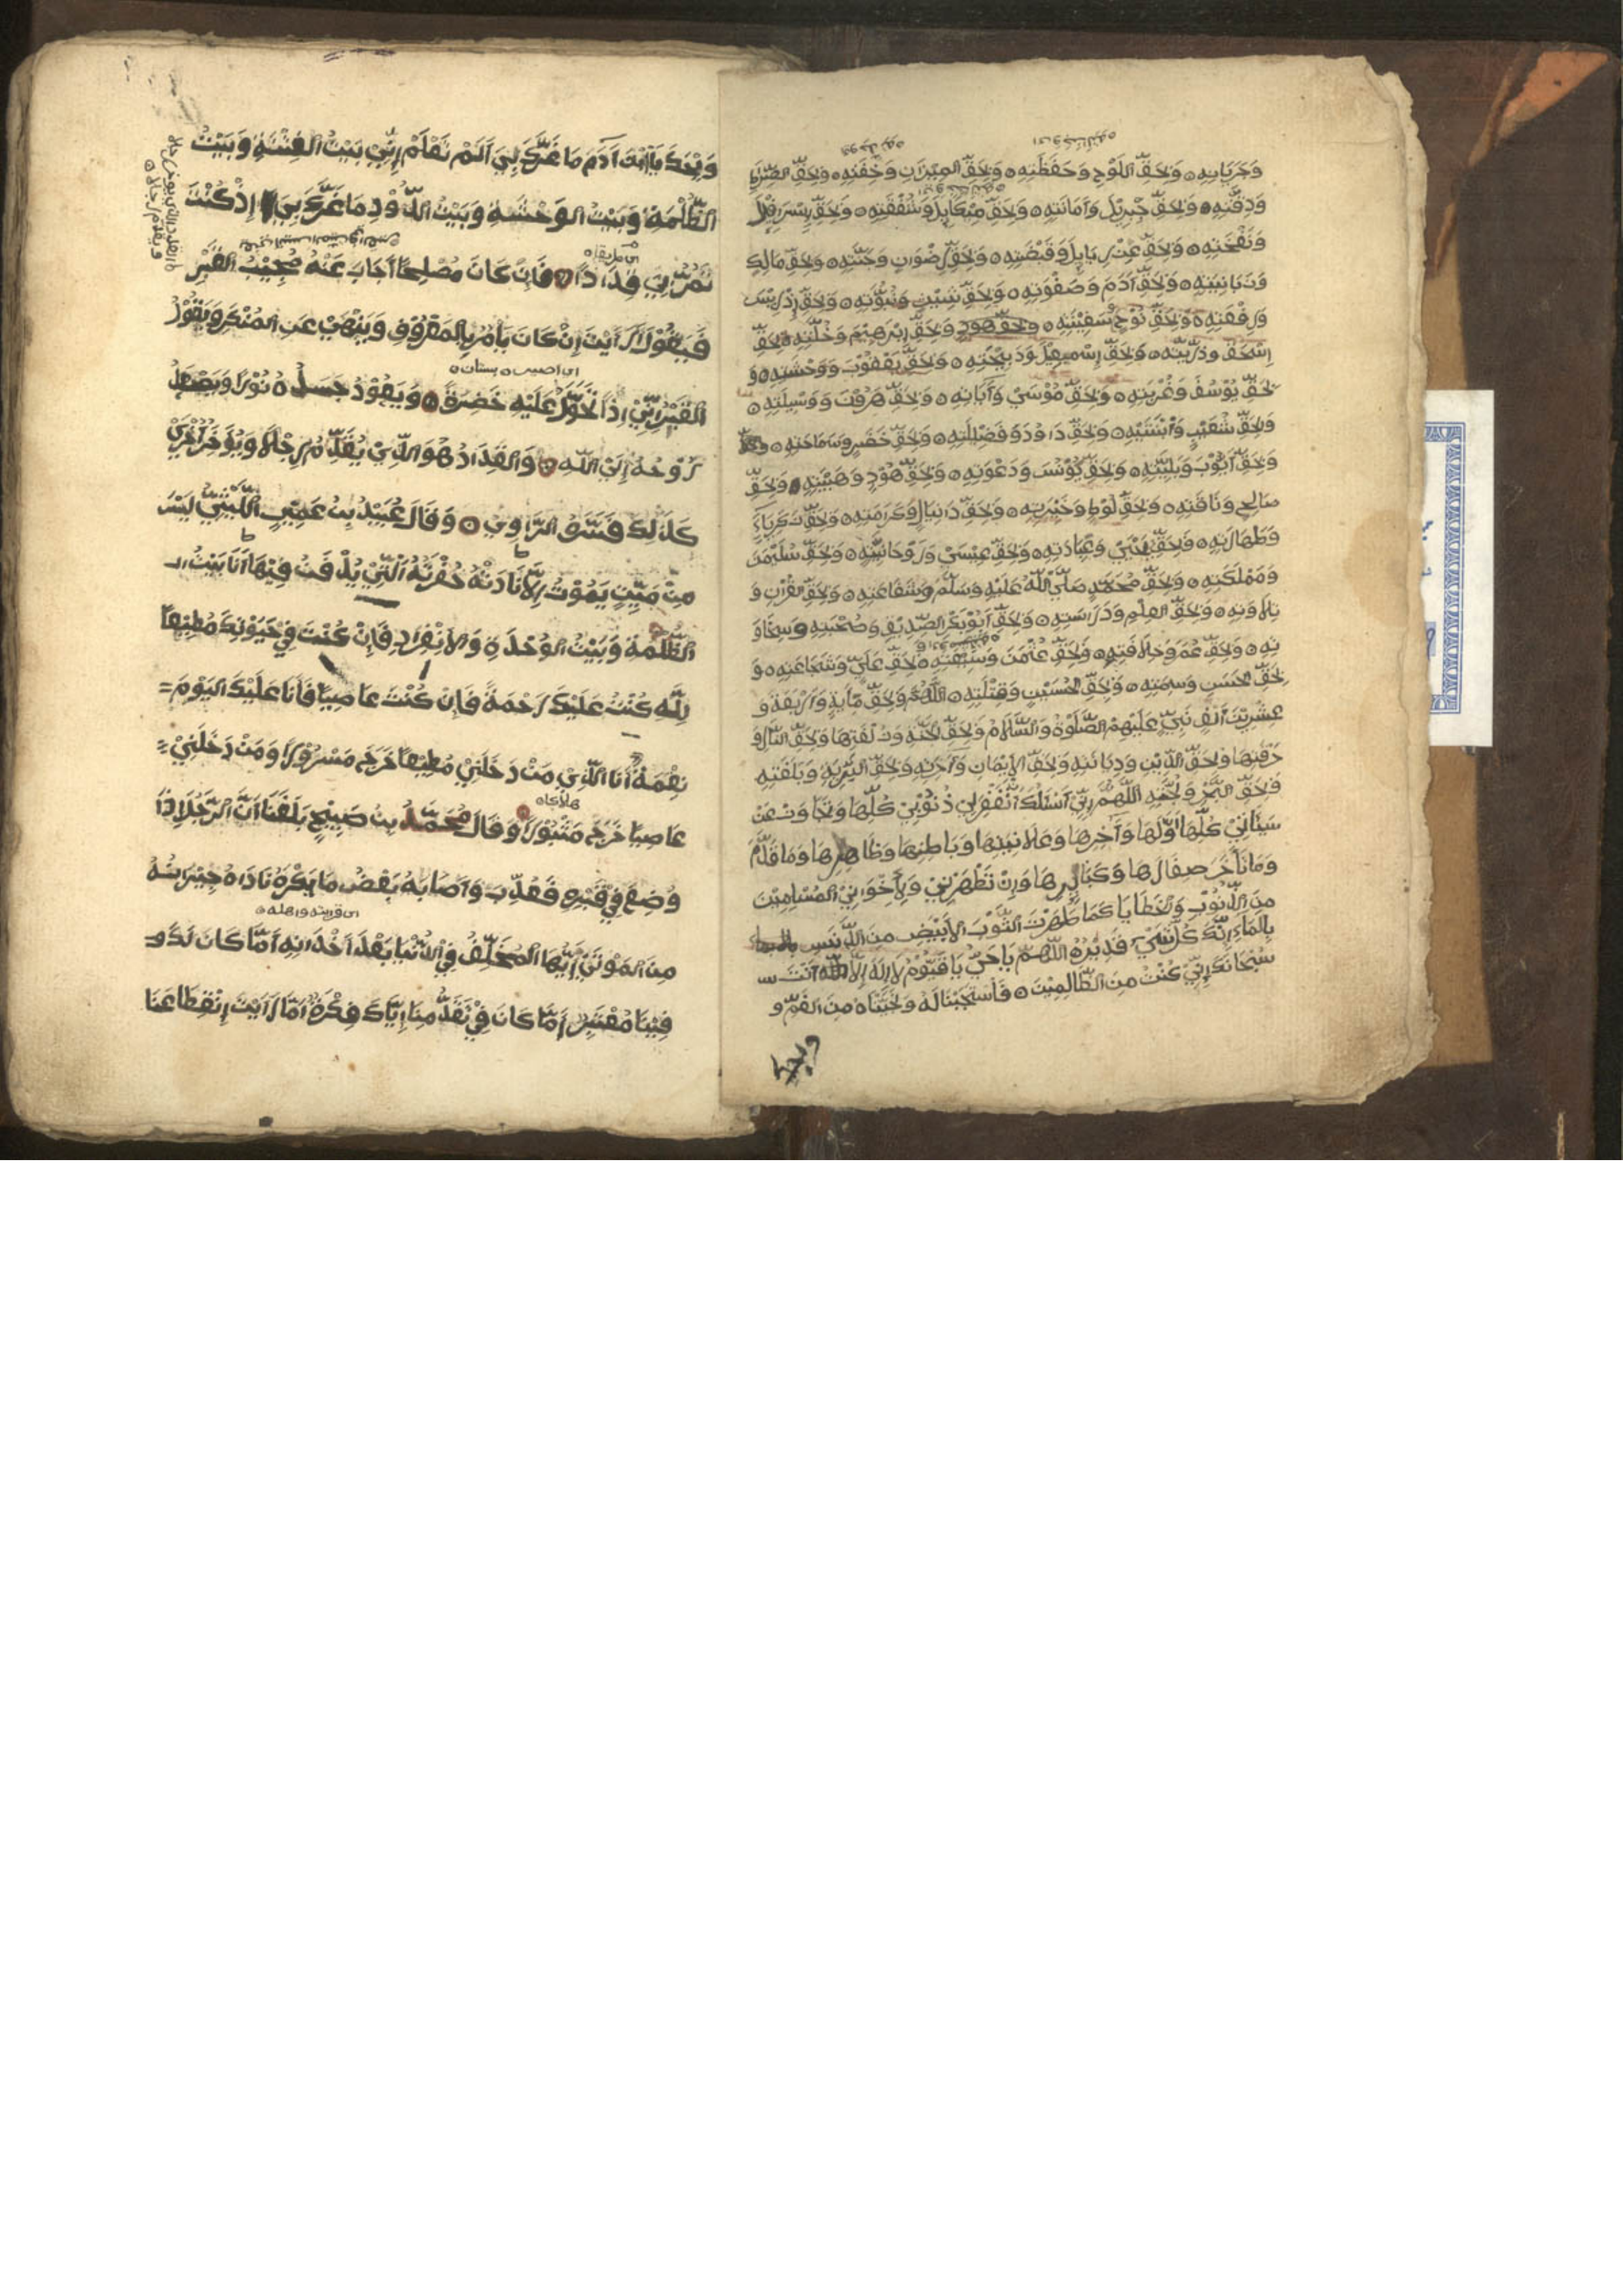 وَجَرَيَانِهِ ٥ وَبِحَقِّ اللَّوْحِ وَحَفَظَتِهِ ٥ وَبِحَقِّ الْمِيْزَانِ وَخِفَّتِهِ ٥ وَبِحَقِّ الصِّرَاطِ
وَدِقَّتِهِ ٥ وَبِحَقِّ جِبْرِيْلَ وَأَمَانَتِهِ ٥ وَبِحَقِّ مِيْكَايِلَ وَشَفَقَتِهِ ٥ وَبِحَقِّ إِسْرَافِيْلَ
وَنَفْخَتِهِ ٥ وَبِحَقِّ عِزْرَايِلَ وَقَبْضَتِهِ ٥ وَبِحَقِّ رِضْوَانٍ وَجَنَّتِهِ ٥ وَبِحَقِّ مَالِكٍ
وَزَبَانِيَتِهِ ٥ وَبِحَقِّ آدَمَ وَصَفْوَتِهِ ٥ وَبِحَقِّ شِيْثٍ وَنُبُوَّتِهِ ٥ وَبِحَقِّ إِدْرِيْسَ
وَرِفْعَتِهِ ٥ وَبِحَقِّ نُوْحٍ وَسَفِيْنَتِهِ ٥ وَبِحَقِّ هُودٍ وَبِحَقِّ إِبْرٰهِيْمَ وَخُلَّتِهِ ٥ وَبِحَقِّ
إِسْحٰقَ وَذُرِّيَّتِهِ ٥ وَبِحَقِّ إِسْمٰعِيْلَ وَذَبِيْحَتِهِ ٥ وَبِحَقِّ يَعْقُوْبَ وَوَحْشَتِهِ ٥ وَ
بِحَقِّ يُوْسُفَ وَغُرْبَتِهِ ٥ وَبِحَقِّ مُوْسَيٰ وَآيَاتِهِ ٥ وَبِحَقِّ هٰرُوْنَ وَوَسِيْلَتِهِ ٥
وَبِحَقِّ شُعَيْبٍ وَابْنَتَيْهِ ٥ وَبِحَقِّ دَاوُدَ وَفَضِيْلَتِهِ ٥ وَبِحَقِّ خَضِرٍ وَسَمَاحَتِهِ ٥
وَبِحَقِّ أَيُّوْبَ وَبَلِيَّتِهِ ٥ وَبِحَقِّ يُوْنُسَ وَدَعْوَتِهِ ٥ وَبِحَقِّ هُوْدٍ وَهَيْبَتِهِ ٥ وَبِحَقِّ
صَالِحٍ وَنَاقَتِهِ ٥ وَبِحَقِّ لُوْطٍ وَخَيْرَتِهِ ٥ وَبِحَقِّ دَانِيَالَ وَكَرَامَتِهِ ٥ وَبِحَقِّ زَكَرِيَاءَ
وَطَهَارَتِهِ ٥ وَبِحَقِّ يَحْيَيٰ وَعِبَادَتِهِ ٥ وَبِحَقِّ عِيْسَيٰ وَرُوْحَانِيَّتِهِ ٥ وَبِحَقِّ سُلَيْمٰنَ
وَمَمْلَكَتِهِ ٥ وَبِحَقِّ مُحَمَّدٍ صَلَّي اللّٰهُ عَلَيْهِ وَسَلَّمَ وَشَفَاعَتِهِ ٥ وَبِحَقِّ الْقُرْآنِ وَ
تِلَاوَتِهِ ٥ وَبِحَقِّ الْعِلْمِ وَدَرَاسَتِهِ ٥ وَبِحَقِّ أَبُوْبَكْرٍ الصِّدِّيْقِ وَصُحْبَتِهِ وَسَخَاوَ
تِهِ ٥ وَبِحَقِّ عُمَرَ وَخِلَافَتِهِ ٥ وَبِحَقِّ عُثْمٰنَ وَسَبْقَتِهِ ٥ بِحَقِّ عَلِيٍّ وَشَجَاعَتِهِ ٥ وَ
بِحَقِّ الْحَسَنِ وَسِمَتِهِ ٥ وَبِحَقِّ الْحُسَيْنِ وَقِتْلَتِهِ ٥ اللّٰهُمَّ وَبِحَقِّ مِايَةٍ وَأَرْبَعَةٍ وَ
عِشْرِيْنَ أَلْفَ نَبِيٍّ عَلَيْهِمُ الصَّلٰوةُ وَالسَّلَامُ وَبِحَقِّ الْجَنَّةِ وَزُلْفَتِهَا وَبِحَقِّ النَّارِ وَ
حُرْقَتِهَا وَبِحَقِّ الدِّيْنِ وَدِيَانَتِهِ وَبِحَقِّ الْإِيْمَانِ
وَبِحَقِّ الْبَرِّ وَلُجَّتِهِ اللّٰهُمَّ إِنِّيْ أَسْئَلُكَ أَنْ تَغْفِرَ لِيْ ذُنُوْبِيْ كُلِّهَا
سَيِّئَاتِيْ كُلِّهَا أَوَّلِهَا وَآخِرِهَا وَعَلَانِيَتِهَا وَبَاطِنِهَا وَظَاهِرِهَا وَمَا قَدَّمَ
وَمَاتَأَخَّرَ صِغَارَهَا وَكِبَارِهَا وَإِنْ تُطَهِّرْنِيْ وَلِإِخْوَانِيْ الْمُسْلِمِيْنَ
مِنَ الذُّنُوْبِ وَالْخَطَايَا كَمَا طَهَّرْتَ الثَّوْبَ الْأَبْيَضَ مِنَ الدَّنَسِ
بِالْمَاءِ إِنَّكَ كُلِّ شَيْءٍ قَدِيْرٌ ٥ اللّٰهُمَّ يَاحَيُّ يَاقَيُّوْمُ لَاإِلٰهَ إِلَّا أَنْتَ
سُبْحَانَكَ إِنِّيْ كُنْتُ مِنَ الظَّالِمِيْنَ ٥ فَاسْتَجَبْنَا لَهُ وَنَجَّيْنَاهُ مِنَ الْغَمِّ و
وَيْحَكَ
وَيْحَكَ يَاابْنَ آدَمَ مَا غَرَّكَ بِيْ أَلَمْ تَعْلَمْ إِنِّيْ بَيْتُ الْفِتْنَةِ وَبَيْتُ
الظُّلْمَةِ وَبَيْتُ الْوَحْشَةِ وَبَيْتُ الدُّوْدِ مَا غَرَّكَ بِيْ إِذْ كُنْتَ
تَمُرُّ بِيْ فَدَّادًا ٥ فَإِنْ كَانَ مُصْلِحًا أَجَابَ عَنْهُ مُجِيْبُ الْقَبْرِ
فَيَقُوْلُ أَرَأَيْتَ إِنْ كَانَ يَأْمُرُ بِالْمَعْرُوْفِ وَيَنْهَيٰ عَنِ الْمُنْكَرِ وَيَقُوْلُ
اى اصير ٥ بستان ٥
الْقَبْرُ إِنِّيْ إِذًا تُحَوَّلُ عَلَيْهِ خَضِرَةً ٥ وَيَعُوْدُ جَسَدُهُ نُوْرًا وَيَصْعَدُ
رُوْحُهُ إِلَيٰ اللّٰهِ ٥ وَالْفَدَّادُ هُوَ الَّذِيْ يُقَدِّمُ رِجْلًا وَيُؤَخِّرُ أُخْرَيٰ
كَذٰلِكَ فَسَّرَهُ الرَّاوِيْ ٥ وَقَالَ عُبَيْدُ بِنْ عُمَيْرٍ اللَّيْثِيُّ لَيْسَ
مِنْ مَيِّتٍ يَمُوْتُ إِلَّا نَادَتْهُ حُفْرَتُهُ الَّتِيْ يُدْفَنُ فِيْهَا أَنَا بَيْتُ ال
الظُّلْمَةِ وَبَيْتُ الْوَحْدَةِ وَالْإِنْفِرَادِ فَإِنْ كُنْتَ فِيْ حَيٰوتِكَ مُطِيْعًا
لِلّٰهِ كُنْتُ عَلَيْكَ رَحْمَةً فَإِنْ كُنْتَ عَاصِيًا فَأَنَا عَلَيْكَ الْيَوْمَ =
نِقْمَةٌ أَنَا الَّذِيْ مَنْ دَخَلَنِيْ مُطِيْعًا خَرَجَ مَسْرُوْرًا وَمَنْ دَخَلَنِيْ =
هلاكا ٥
عَاصِيًا خَرَجَ مَثْبُوْرًا وَقَالَ مُحَمَّدُ بِنْ صَبِيْحٍ بَلَغَنَا أَنَّ الرَّجُلَ إِذَا
وُضِعَ فِيْ قَبْرِهِ فَعُذِّبَ وَأَصَابَهُ بَعْضُ مَا يَكْرَهُ نَادَاهُ جِيْرَانُهُ
مِنَ الْمَوْتَيٰ أَيُّهَا الْمُخَلِّفُ فِيْ الدُّنْيَا بَعْدَ أَخْدَانِهِ أَمَّا كَانَ لَكَ و
فِيْنَا مُعْتَبِرٌ أَمَّا كَانَ فِيْ تَقَدُّمِنَا إِيَّاكَ فِكْرَةٌ أَمَّا رَأَيْتَ إِنْقِطَاعَنَا